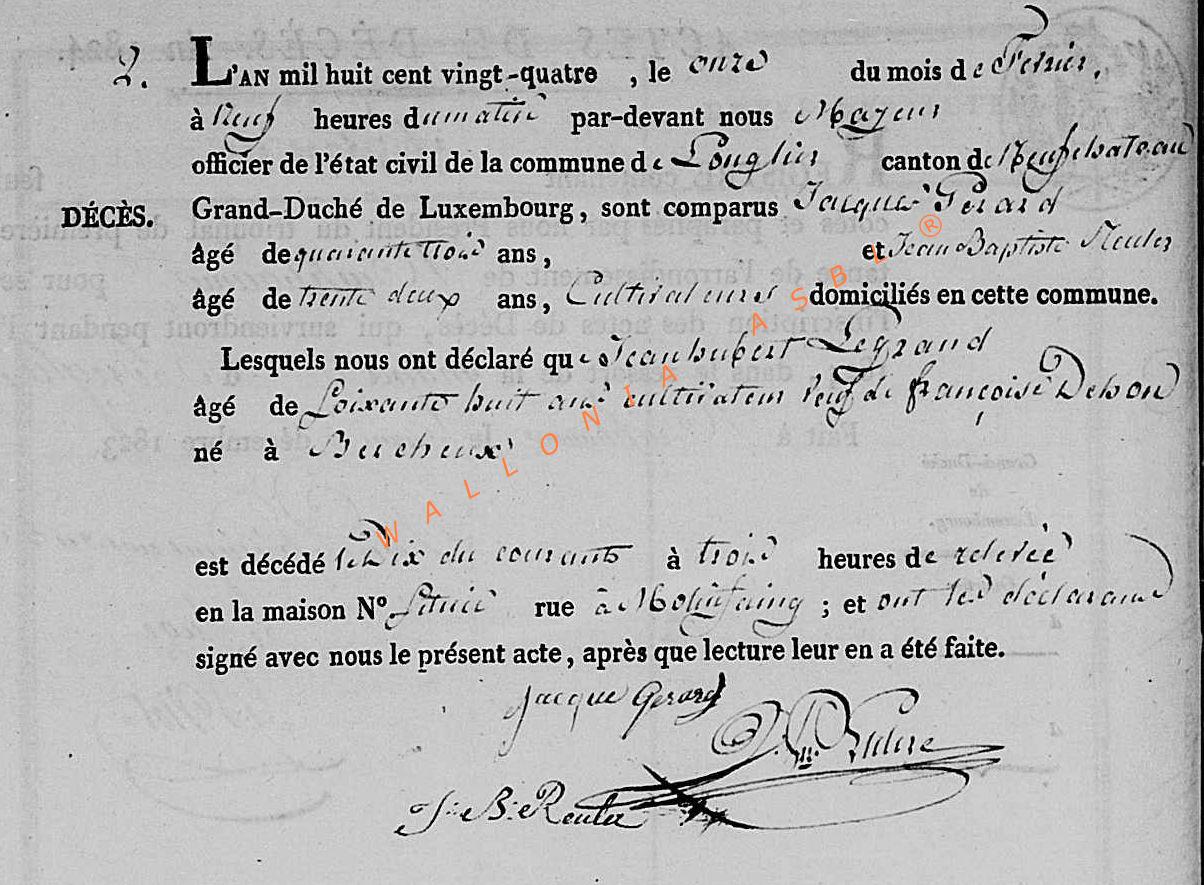 2. L'AN mil huit cent vingt-quatre , le onze du mois de Fevrier,
à Neuf heures dumatin par-devant nous Mayeur
officier de l'état civil de la commune de Longlier canton de Neufchateau
DÉCÈS. Grand-Duché de Luxembourg, sont comparus Jacque Gerard
âgé de quarante trois ans, et Jean Baptiste Reuter
âgé de trente deux ans, Cultivateurs domiciliés en cette commune.
Lesquels nous ont déclaré que Jean hubert Legrand
âgé de Soixante huit ans cultivateur veuf de françoise
né à Bercheux
est décédé le Dix du courant à trois heures de relevée
en la maison N° Située rue à Molinfaing ; et ont les déclarans
signé avec nous le présent acte, après que lecture leur en a été faite.
Jacque Gerard
J: B: Reuter
WALLONIA ASBL ®